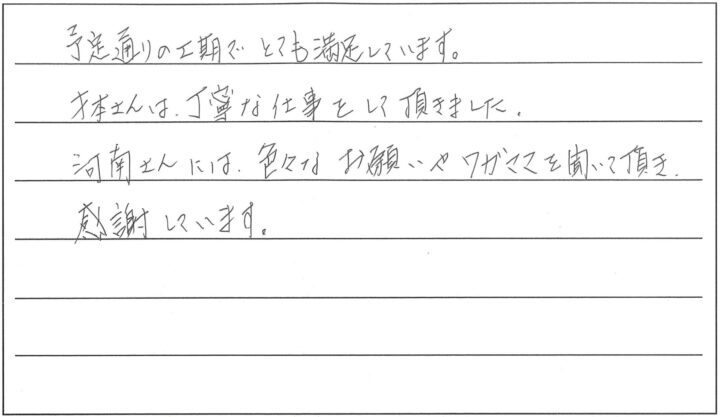 予定通りの工期でとても満足しています。
才本さんは、丁寧な仕事をして頂きました。
河南さんには、色々なお願いやワガママを聞いて頂き、
感謝しています。